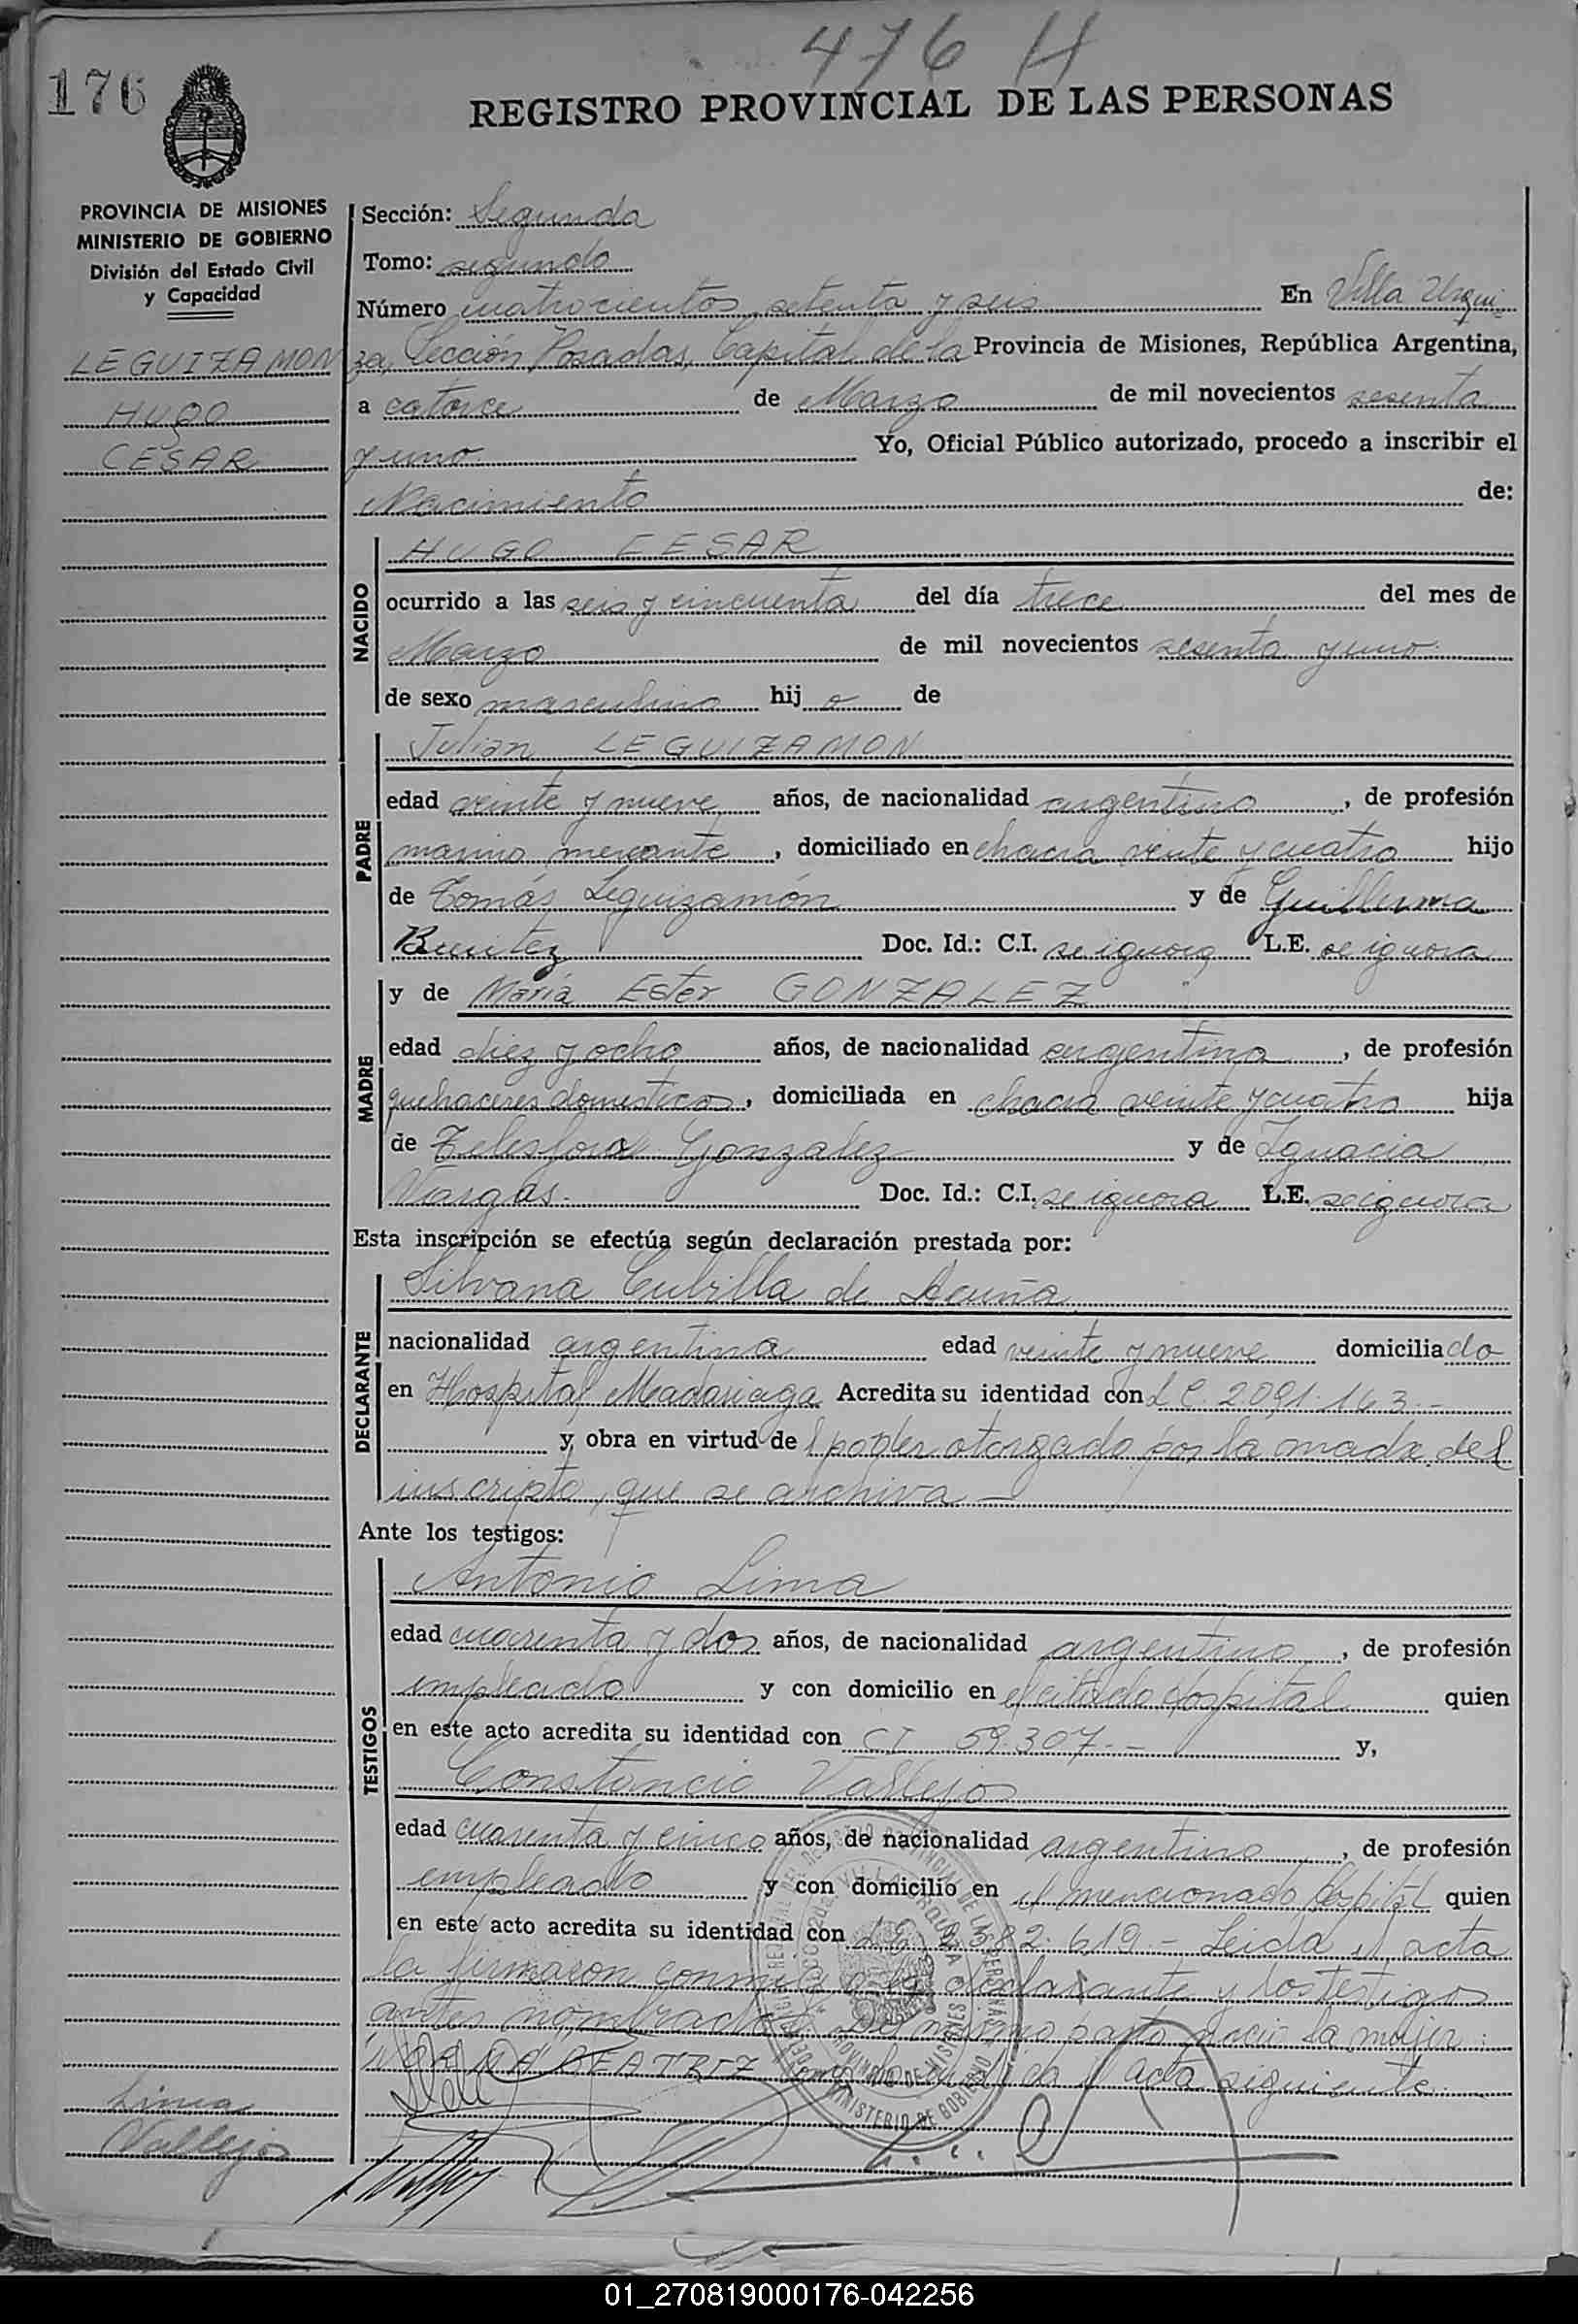 476 H
176
REGISTRO PROVINCIAL DE LAS PERSONAS
PROVINCIA DE MISIONES
MINISTERIO DE GOBIERNO
División del Estado Civil
y Capacidad
LEGUIZAMON
HUGO
CESAR
Sección: Segunda
Tomo: segundo
Número cuatrocientos setenta y seis En Villa Urqui
za, Sección Posadas, Capital de la Provincia de Misiones, República Argentina,
a catorce de Marzo de mil novecientos sesenta
y uno Yo, Oficial Público autorizado, procedo a inscribir el
Nacimiento de:
NACIDO
HUGO CESAR
ocurrido a las seis y cincuenta del día trece del mes de
Marzo de mil novecientos sesenta y uno
de sexo masculino hij o de
PADRE
Julian LEGUIZAMON
edad veinte y nueve años, de nacionalidad argentino, de profesión
marino mercante, domiciliado en chacra veinte y cuatro hijo
de Tomás Leguizamón y de Guillerma
Benitez Doc. Id.: C.I. se ignora L.E. se ignora
MADRE
y de María Ester GONZALEZ
edad diez y ocho años, de nacionalidad argentina, de profesión
quehaceres domesticos, domiciliada en chacra veinte y cuatro hija
de Gonzalez y de Ignacia
Vargas. Doc. Id.: C.I. se ignora L.E. se ignora
Esta inscripción se efectúa según declaración prestada por:
DECLARANTE
Silvana Cubilla de Acuña
nacionalidad argentina edad veinte y nueve domiciliado
en Hospital Madariaga Acredita su identidad con L C. 2.091.163.-
y obra en virtud de l poder otorgado por la madre del
inscripto, que se archiva -
Ante los testigos:
TESTIGOS
Antonio Lima
edad cuarenta y dos años, de nacionalidad argentino, de profesión
empleado y con domicilio en el citado Hospital quien
en este acto acredita su identidad con CI 59.307.- y,
Constancio Vallejos
edad cuarenta y cinco años, de nacionalidad argentino, de profesión
empleado y con domicilio en el mencionado Hospital quien
en este acto acredita su identidad con L.E. 2.582.619.- Leida el acta
la firmaron conmigo la declarante y los testigos
antes nombrados. Del mismo parto nació la mujer:
BEATRIZ acta siguiente.-
Lima
Vallejos
01_270819000176-042256